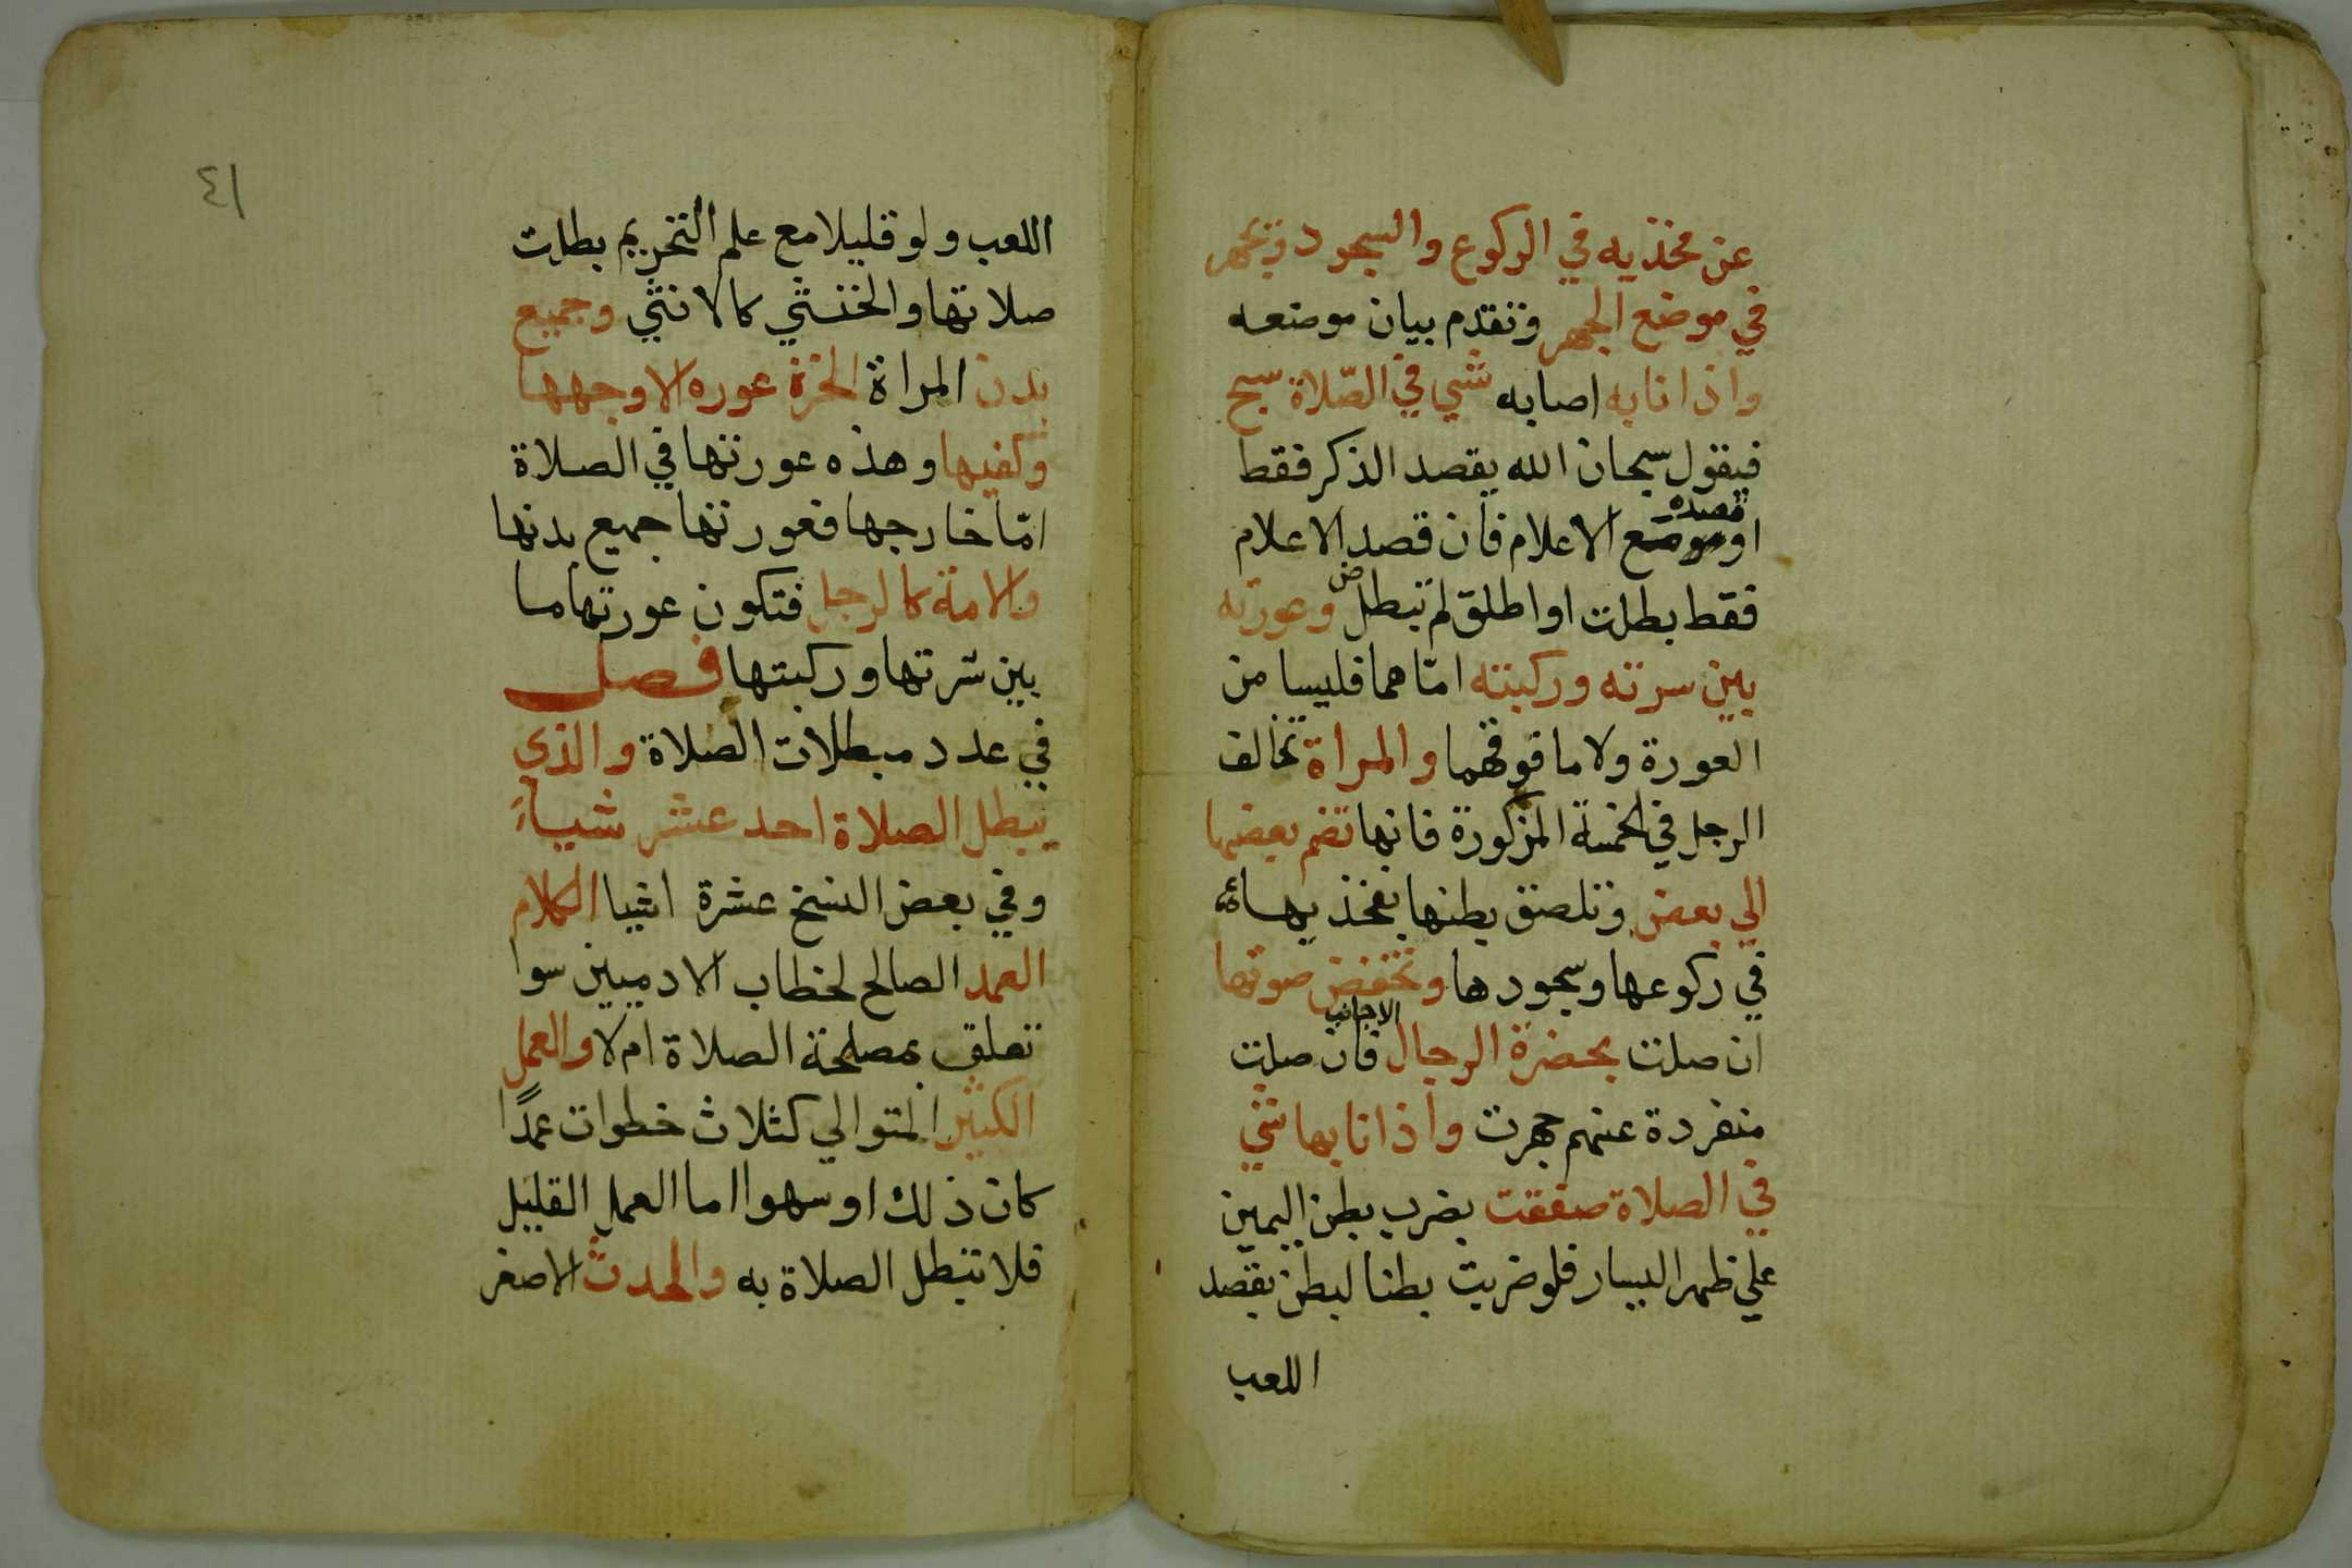 عن فخذيه في الركوع والسجود ويجهر
في موضع الجهر وتقدم بيان موضعه
واذا نابه اصابه شي في الصّلاة سبح
فيقول سبحان الله بقصد الذكر فقط
قصده
او موضع الاعلام فان قصد الاعلام
فقط بطلت او اطلق لم تبطل وعورته
بين سرته وركبته امّا هما فليسا من
العورة ولا ما فوقهما والمراة تخالف
الرجل في الخمسة المذكورة فانها تضم بعضها
الي بعض وتلصق بطنها بفخذيها
في ركوعها وسجودها وتخفض صوتها
الاجانب
ان صلت بحضرة الرجال فان صلت
منفردة عنهم جهرت واذا نابها شي
في الصلاة صفقت بضرب بطن اليمين
علي ظهر اليسار فلو ضربت بطنا لبطن بقصد
اللعب
٤١
اللعب ولو قليلا مع علم التحريم بطلت
صلاتها والخنثي كالانثي وجميع
بدن المراة الحرة عوره الا وجهها
وكفيها وهذه عورتها في الصلاة
امّا خارجها فعورتها جميع بدنها
والامة كالرجل فتكون عورتها ما
بين سرتها وركبتها فصل
في عدد مبطلات الصلاة والذي
يبطل الصلاة احد عشر شياً
وفي بعض النسخ عشرة اشيا الكلام
العمد الصالح لخطاب الادميين سوا
تعلق بمصلحة الصلاة ام لا والعمل
الكثير المتوالي كثلاث خطوات عمدًا
كان ذلك او سهوا اما العمل القليل
فلا تبطل الصلاة به والحدث الاصغر